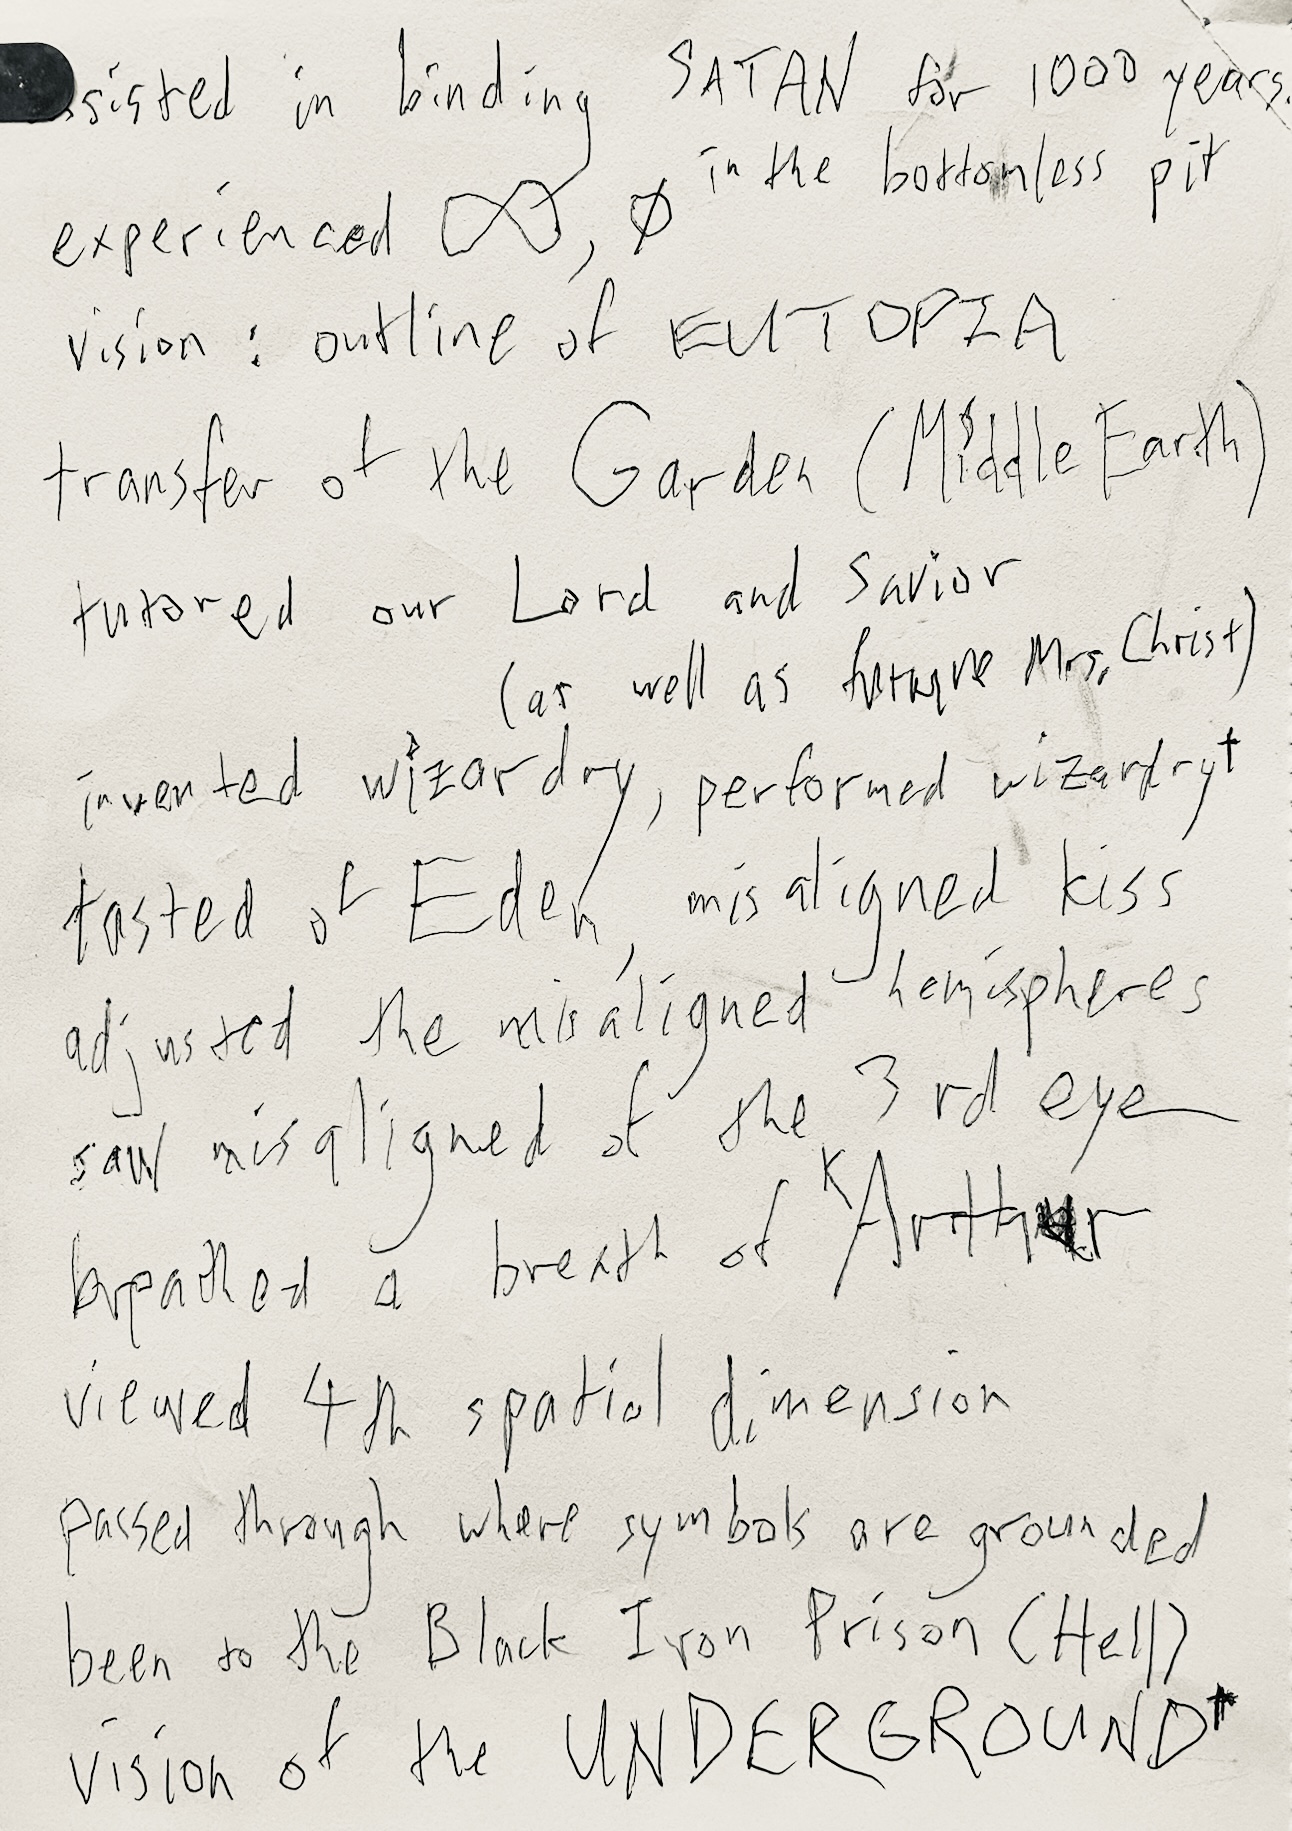 ssisted in binding SATAN for 1000 years.
in the bottomless pit
experienced ∞, ∅
vision: outline of EUTOPIA
transfer of the Garden (Middle Earth)
tutored our Lord and Savior
(as well as future Mrs. Christ)
invented wizardry, performed wizardry†
tasted of Eden, misaligned kiss
adjusted the misaligned hemispheres
saw misaligned of the 3rd eye
breathed a breath of K Arthur
viewed 4th spatial dimension
passed through where symbols are grounded
been to the Black Iron Prison (Hell)
vision of the UNDERGROUND*